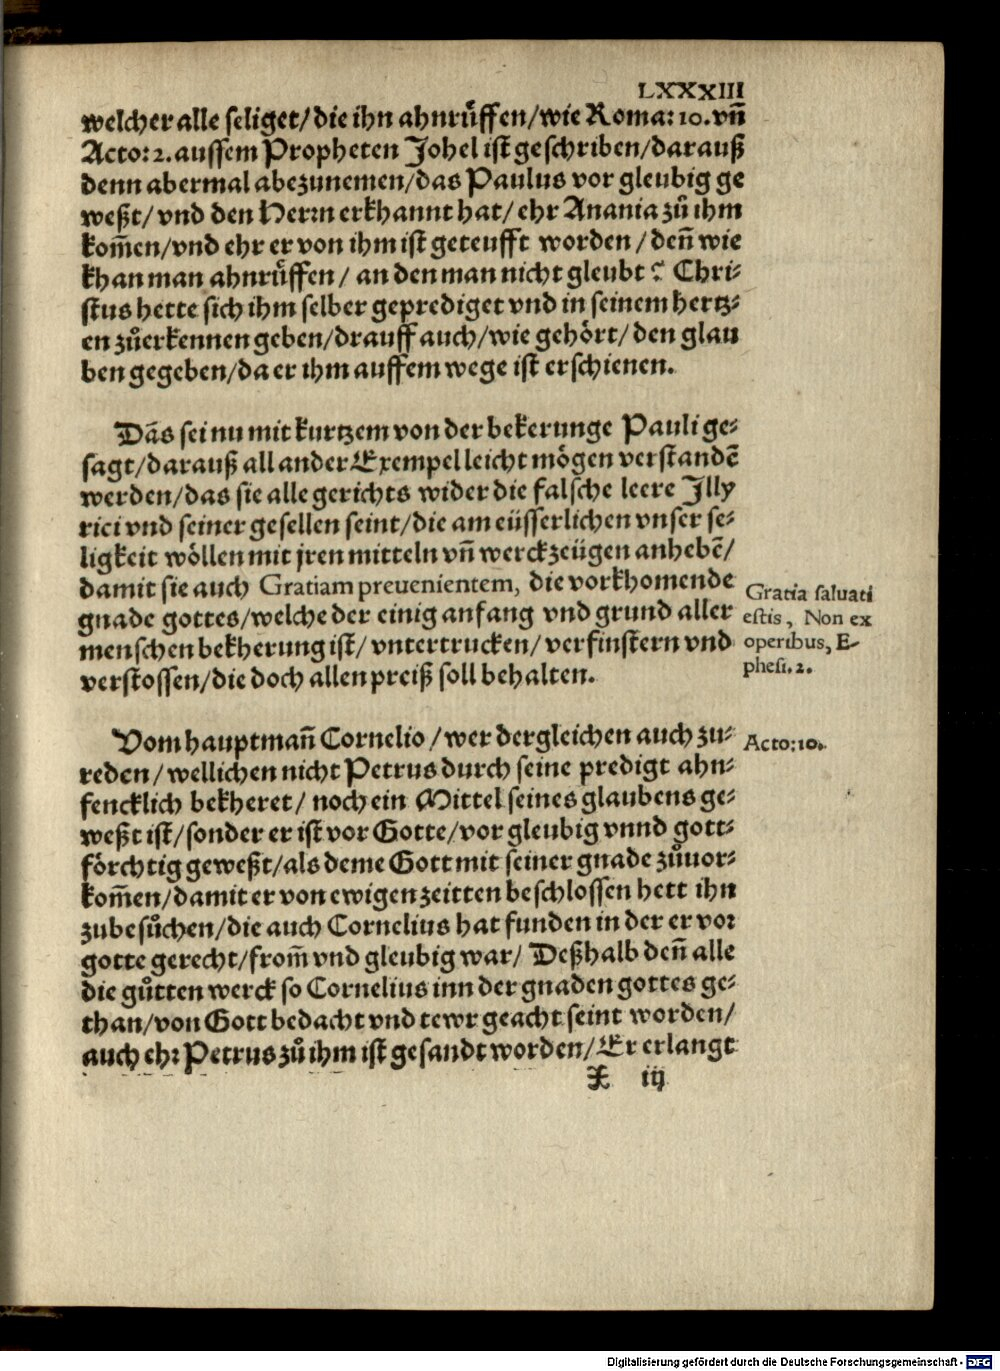 LXXXIII
welcher alle seliget/die ihn ahnrůffen/wie Roma: 10. vn̄
Acto: 2. aussem Propheten Johel ist geschriben/darauß
denn abermal abezunemen/das Paulus vor gleubig ge
weßt/vnd den Herrn erkhannt hat/ ehr Anania zů ihm
kom̄en/vnd ehr er von ihm ist geteufft worden/den̄ wie
khan man ahnrůffen/ an den man nicht gleubt? Chri⸗
stus hette sich ihm selber geprediget vnd in seinem hertz⸗
en zůerkennen geben/drauff auch/wie gehört/den glau
ben gegeben/da er ihm auffem wege ist erschienen.
Dās sei nu mit kurtzem von der bekerunge Pauli ge⸗
sagt/darauß all ander Exempel leicht mögen verstandē
werden/das sie alle gerichts wider die falsche leere Illy
rici vnd seiner gesellen seint/die am eüsserlichen vnser se⸗
ligkeit wöllen mit jren mitteln vn̄ werckzeügen anhebē/
damit sie auch Gratiam preuenientem, die vorkhomende
gnade gottes/welche der einig anfang vnd grund aller
menschen bekherung ist/ vntertrucken/ verfinstern vnd
verstossen/die doch allen preiß soll behalten.
Gratia saluati
estis, Non ex
operibus, E-
phesi. 2.
Vom hauptman̄ Cornelio/wer dergleichen auch zu⸗
reden/wellichen nicht Petrus durch seine predigt ahn⸗
fencklich bekheret/ noch ein Mittel seines glaubens ge⸗
weßt ist/sonder er ist vor Gotte/vor gleubig vnnd gott⸗
förchtig geweßt/als deme Gott mit seiner gnade zůuor⸗
kom̄en/damit er von ewigen zeitten beschlossen hett ihn
zubesůchen/die auch Cornelius hat funden in der er vor
gotte gerecht/from̄ vnd gleubig war/ Deßhalb den̄ alle
die gůtten werck so Cornelius inn der gnaden gottes ge⸗
than/von Gott bedacht vnd tewr geacht seint worden/
auch ehr Petrus zů ihm ist gesandt worden/Er erlangt
Acto: 10.
X iij
Digitalisierung gefördert durch die Deutsche Forschungsgemeinschaft - DFG